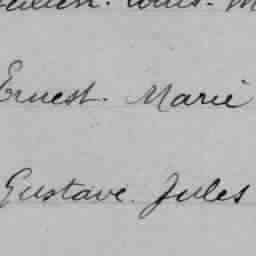 Ernest. Marie
Gustave. Jules